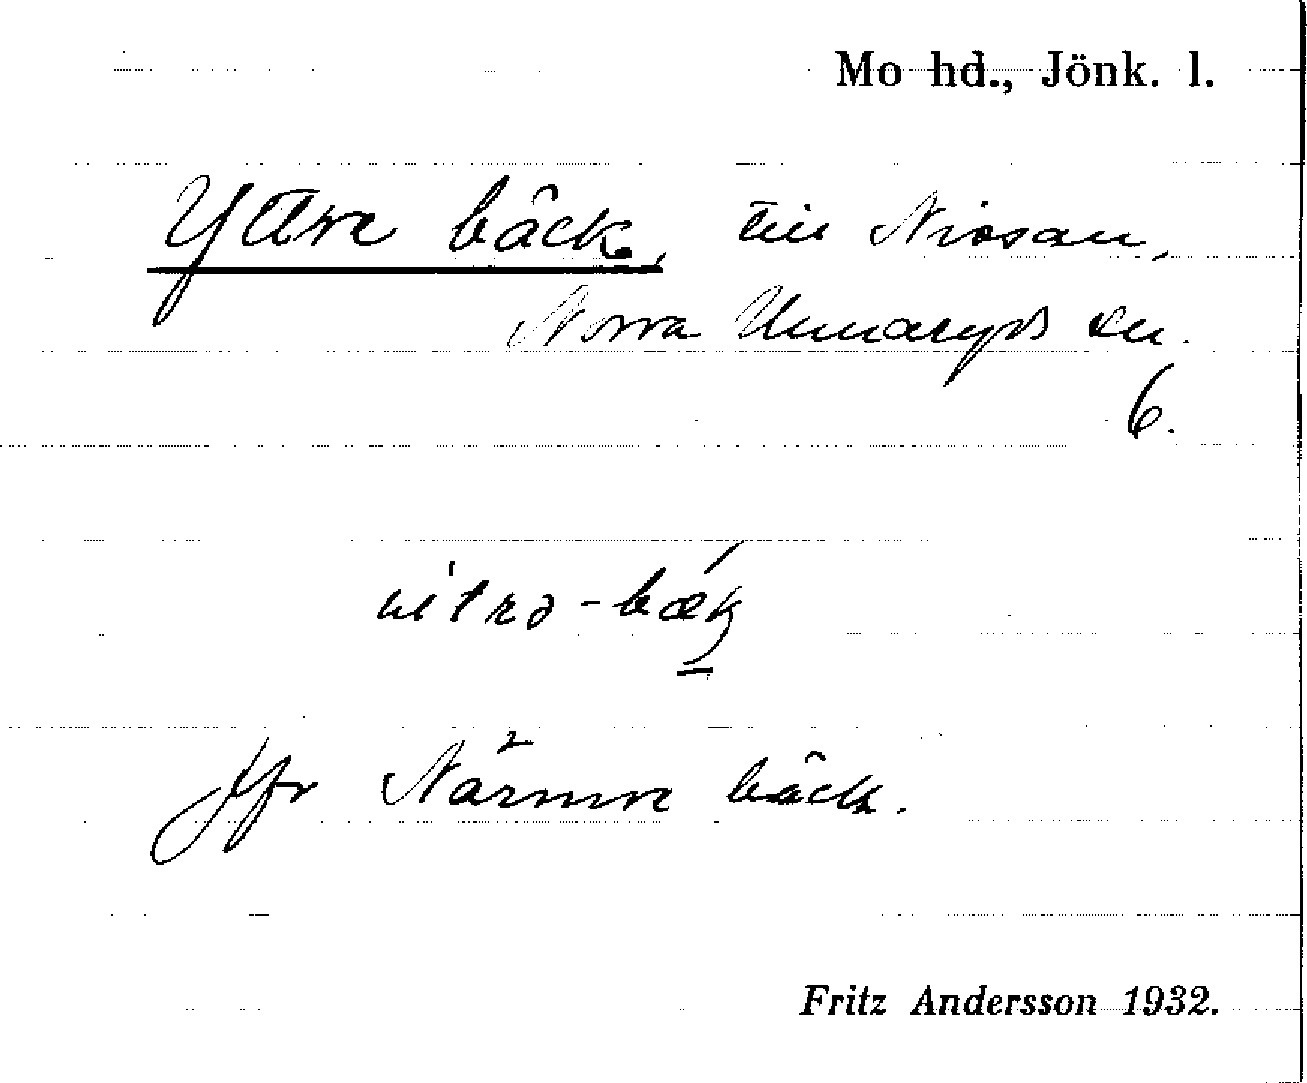 Mo hd., Jönk. l.
Yttre bäck, till Nissan,
Norra Unnaryds sn.
6.
Jfr Närmre bäck.
Fritz Andersson 1932.